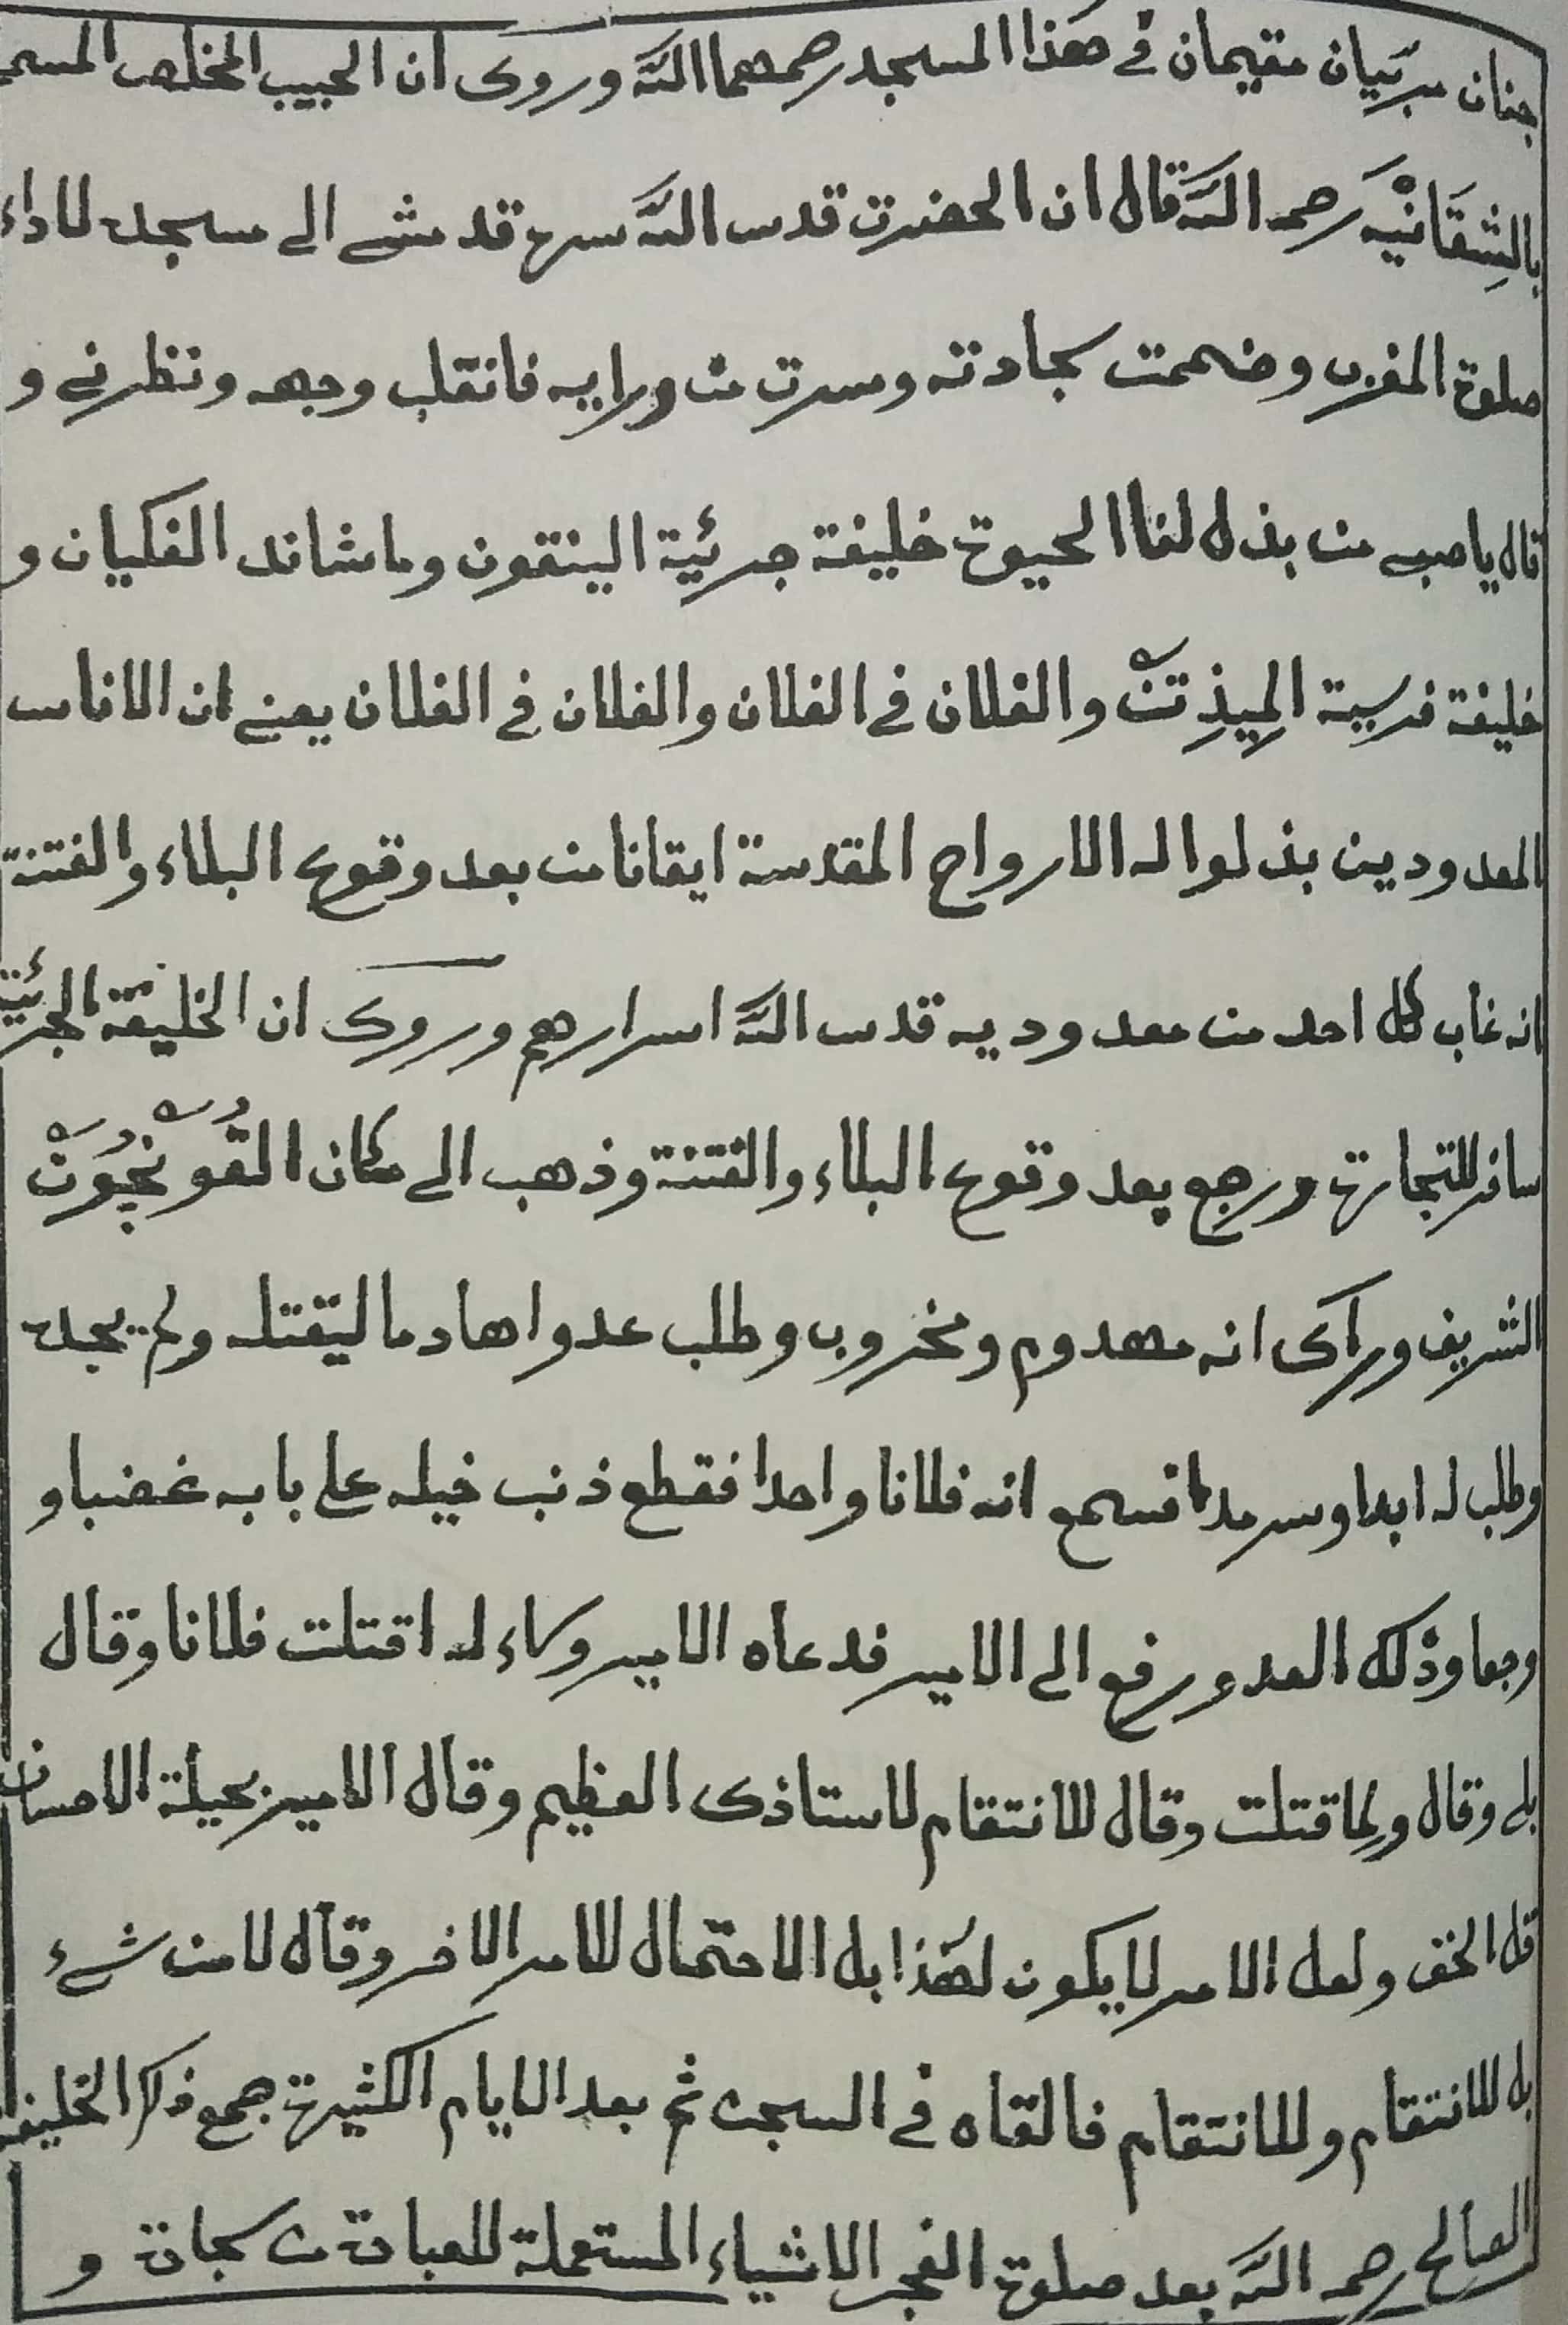 جنان مبرئيان مقيمان في هذا المسجد رحمهما الله وروى ان الحبيب المخلص المسمى
بالشِقَانْيَه رحمه الله قال ان الحضرت قدس الله سره قد مشے الى مسجده لاداء
صلوة المغرب وضممت سجادته وسرت من ورايه فانقلب وجهه ونظرنے و
قال ياصبے من بذل لنا الحيوة خليفة جرئية الينقون وماشاند الفكيان و
خليفة فرسية المِيذِتَنْ والفلان في الفلان والفلان في الفلان يعنے ان الاناس
المعدودين بذلوا له الارواح المقدسة ايقانا من بعد وقوع البلاء والفتنة
انه غاب كل احد من معدوديه قدس الله اسرارهم وروى ان الخليفة الجرئية
سافر للتجارة ورجع بعد وقوع البلاء والفتنة وذهب الى مكان القُونْچُوَنْ
الشريف وراى انه مهدوم ومخروب وطلب عدوا هادما ليقتله ولم يجده
وطلب له ابدا وسرمدا فسمع انه فلانا واحدا فقطع ذنب خيله على بابه غضبا و
وجعا وذلك العدو رفع الى الامير فدعاه الامير وكاء له اقتلت فلانا وقال
بلى وقال ولما قتلت وقال للانتقام لاستاذى العظيم وقال الامير بحيلة الاحسان
قل الحق ولعل الامر لا يكون لهذا بل الاحتمال للامر الاخر وقال لا من شےء
بل للانتقام وللانتقام فالقاه في السجن ثم بعد الايام الكثيرة جمع ذكر الخليفة
الصالح رحمه الله بعد صلوة الفجر الاشياء المستعملة للعبادة من سجادة و